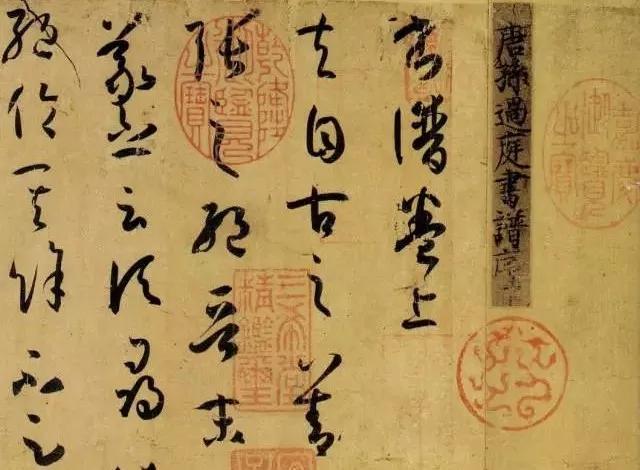 唐孫過庭書譜序
書譜卷上
夫自古之善
張之絕晉末
羲之云頃尋
絕倫其餘不足
乾隆御覽之寶
三希堂精鑑璽
嘉慶御覽之寶